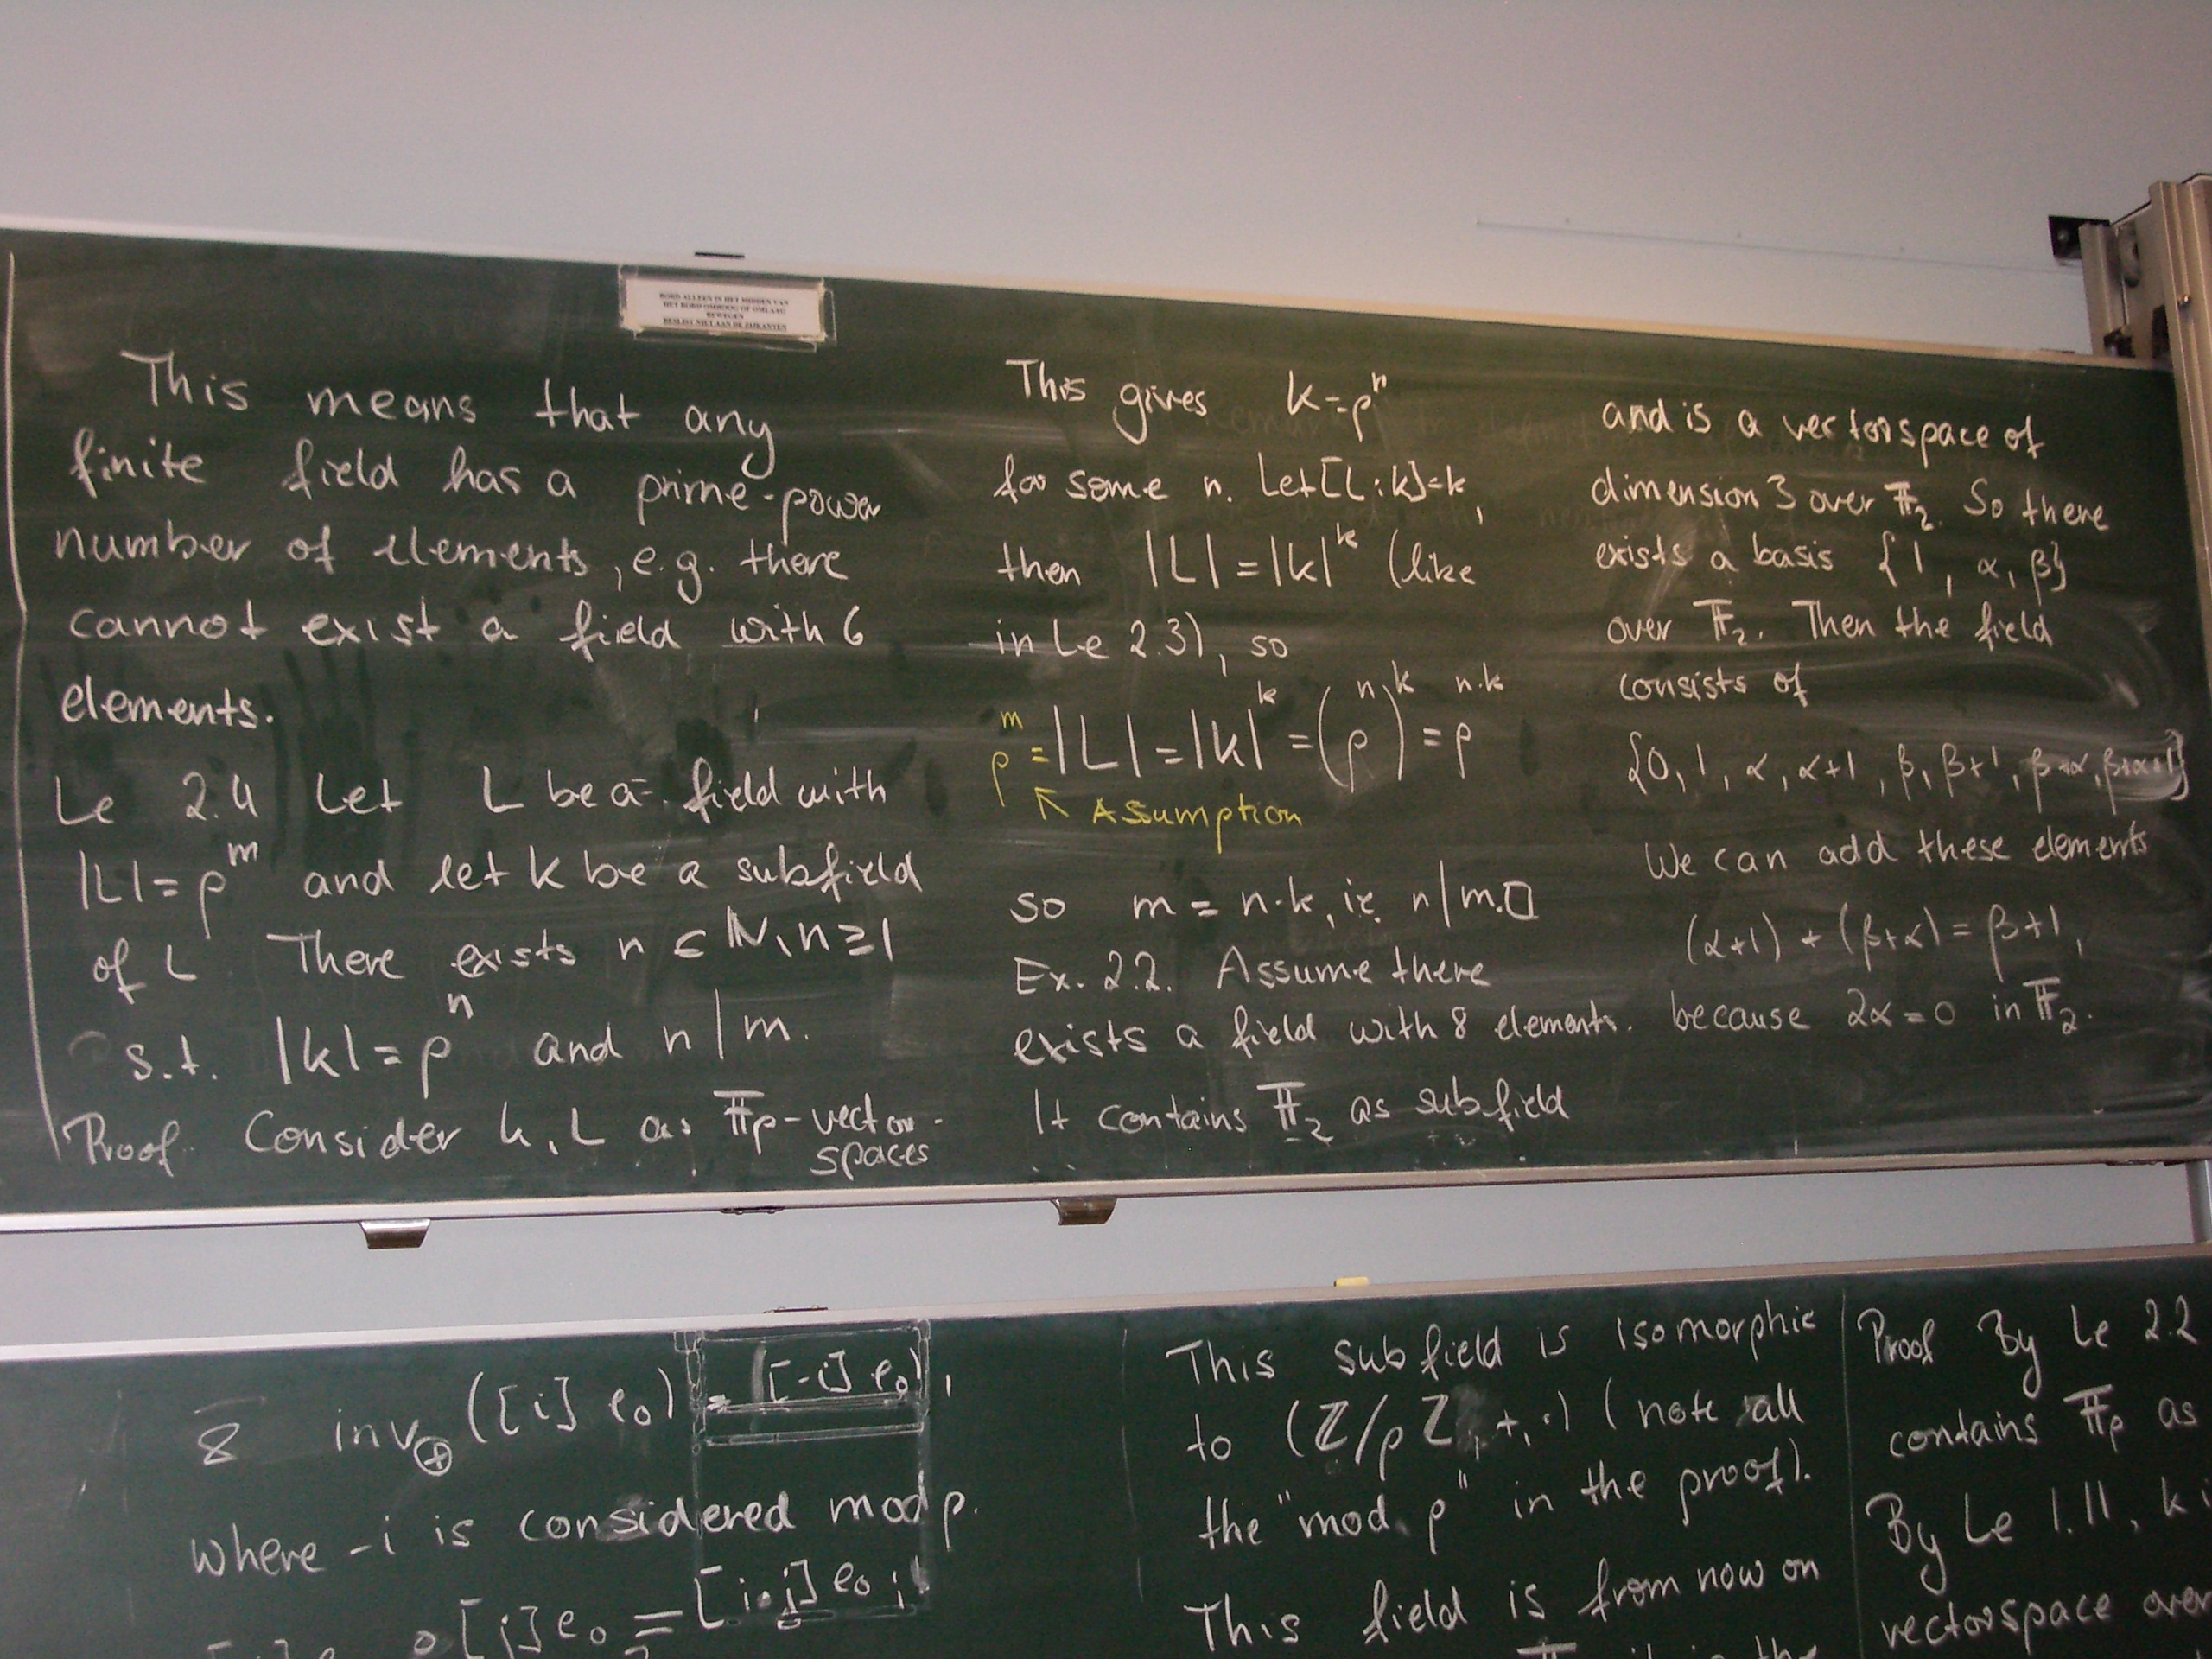 BORD ALLEEN IN HET MIDDEN VAN
HET BORD OMHOOG OF OMLAAG
BEWEGEN
BESLIST NIET AAN DE ZIJKANTEN
This means that any
finite field has a prime-power
number of elements, e.g. there
cannot exist a field with 6
elements.
Le 2.4 Let L be a field with
|L| = p^m and let k be a subfield
of L There exists n ∈ ℕ, n ≥ 1
s.t. |k| = p^n and n | m.
Proof. Consider k, L as 𝔽p-vector-
spaces
This gives k = p^n
for some n. Let [L:k]=k,
then |L| = |k|^k (like
in Le 2.3), so
p^m = |L| = |k|^k = (p^n)^k = p^n·k
↖ Assumption
so m = n·k, i.e. n | m. □
Ex. 2.2. Assume there
exists a field with 8 elements.
It contains 𝔽2 as subfield
and is a vectorspace of
dimension 3 over 𝔽2. So there
exists a basis {1, α, β}
over 𝔽2. Then the field
consists of
{0, 1, α, α+1, β, β+1, β+α, β+α+1}
We can add these elements
(α+1) + (β+α) = β+1,
because 2α = 0 in 𝔽2.
8 inv⊕([i] e0) = [-i] e0,
where -i is considered mod p.
[j] e0 = [i·j] e0
This subfield is isomorphic
to (ℤ/pℤ, +, ·) (note all
the "mod p" in the proof).
This field is from now on
Proof By Le 2.2
contains 𝔽p as
By Le 1.11, k
vectorspace over